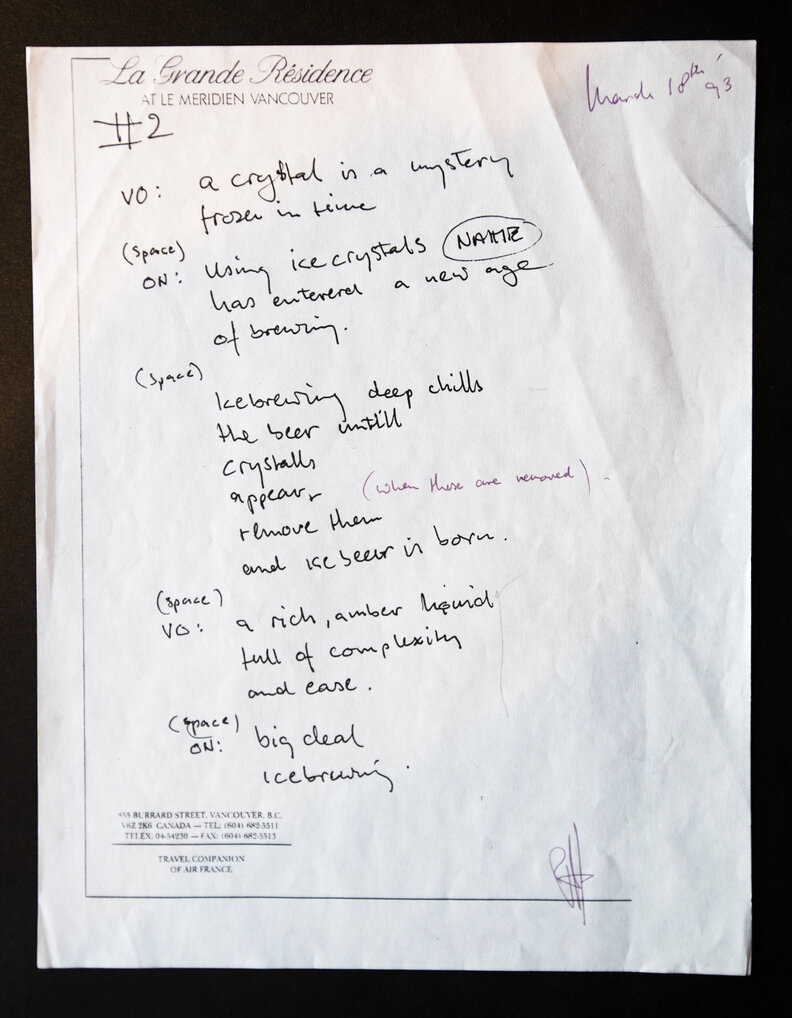 La Grande Résidence
AT LE MERIDIEN VANCOUVER
March 18th '93
#2
VO: a crystal is a mystery
frozen in time
(space)
ON: Using ice crystals NAME
has entered a new age
of brewing.
(space)
Icebrewing deep chills
the beer untill
crystalls
appear,
(when these are removed).
remove them
and ice beer is born.
(space)
VO: a rich, amber liquid
full of complexity
and ease.
(space)
ON: big deal
icebrewing.
855 BURRARD STREET, VANCOUVER, B.C.
V6Z 2K6 CANADA — TEL: (604) 682-5511
TELEX: 04-54230 — FAX: (604) 682-5513
TRAVEL COMPANION
OF AIR FRANCE